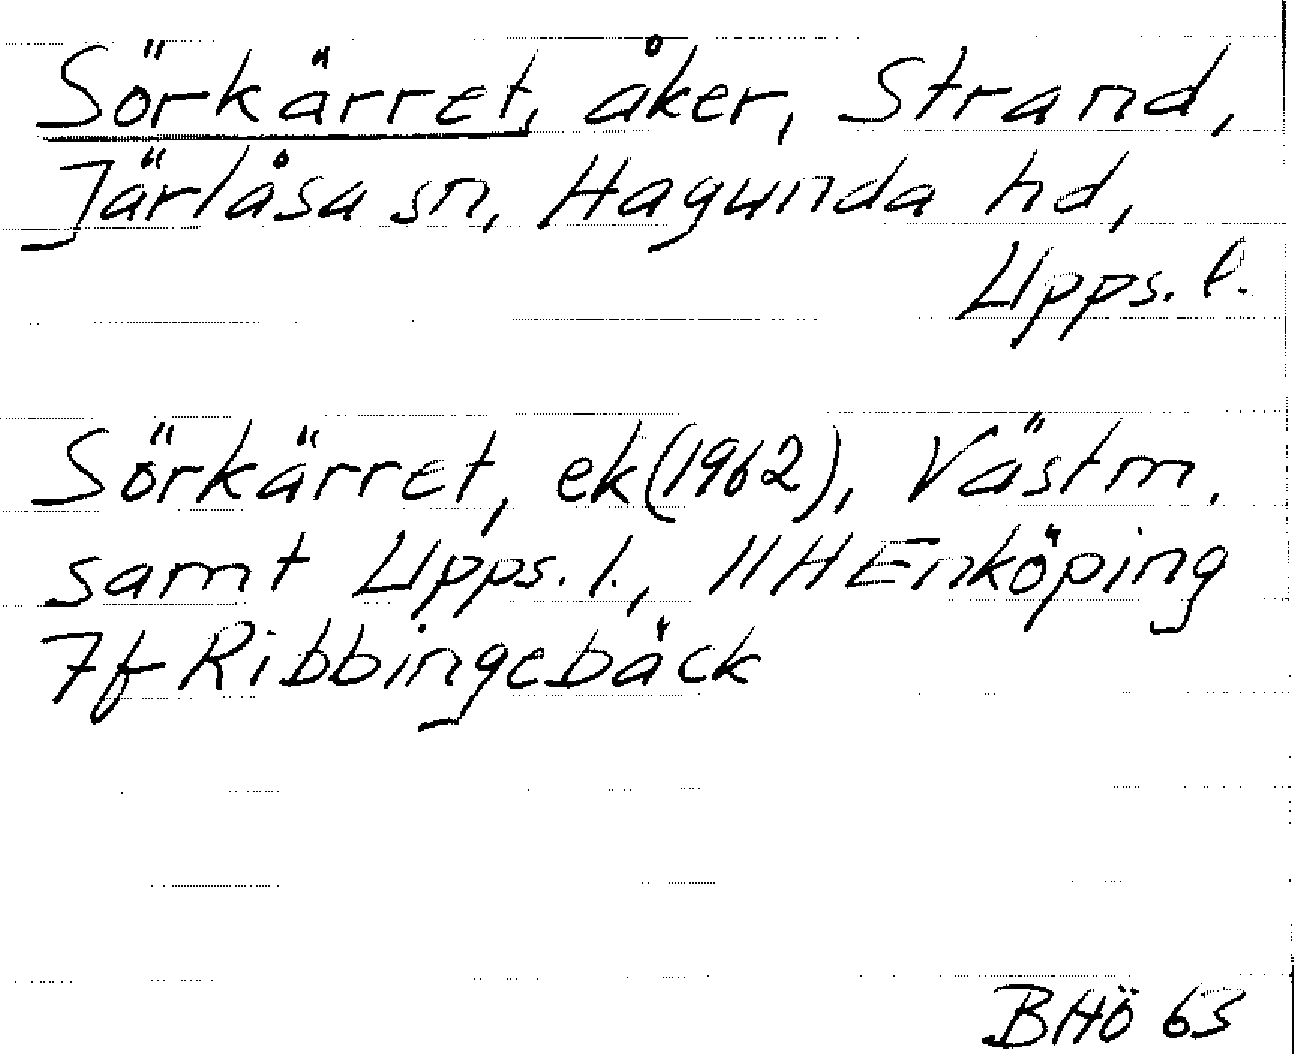 Sörkärret, åker, Strand,
Järlåsa sn, Hagunda hd,
Upps. l.
Sörkärret, ek (1962), Västm.
samt Upps. l., 11H Enköping
7f Ribbingebäck
BHÖ 63